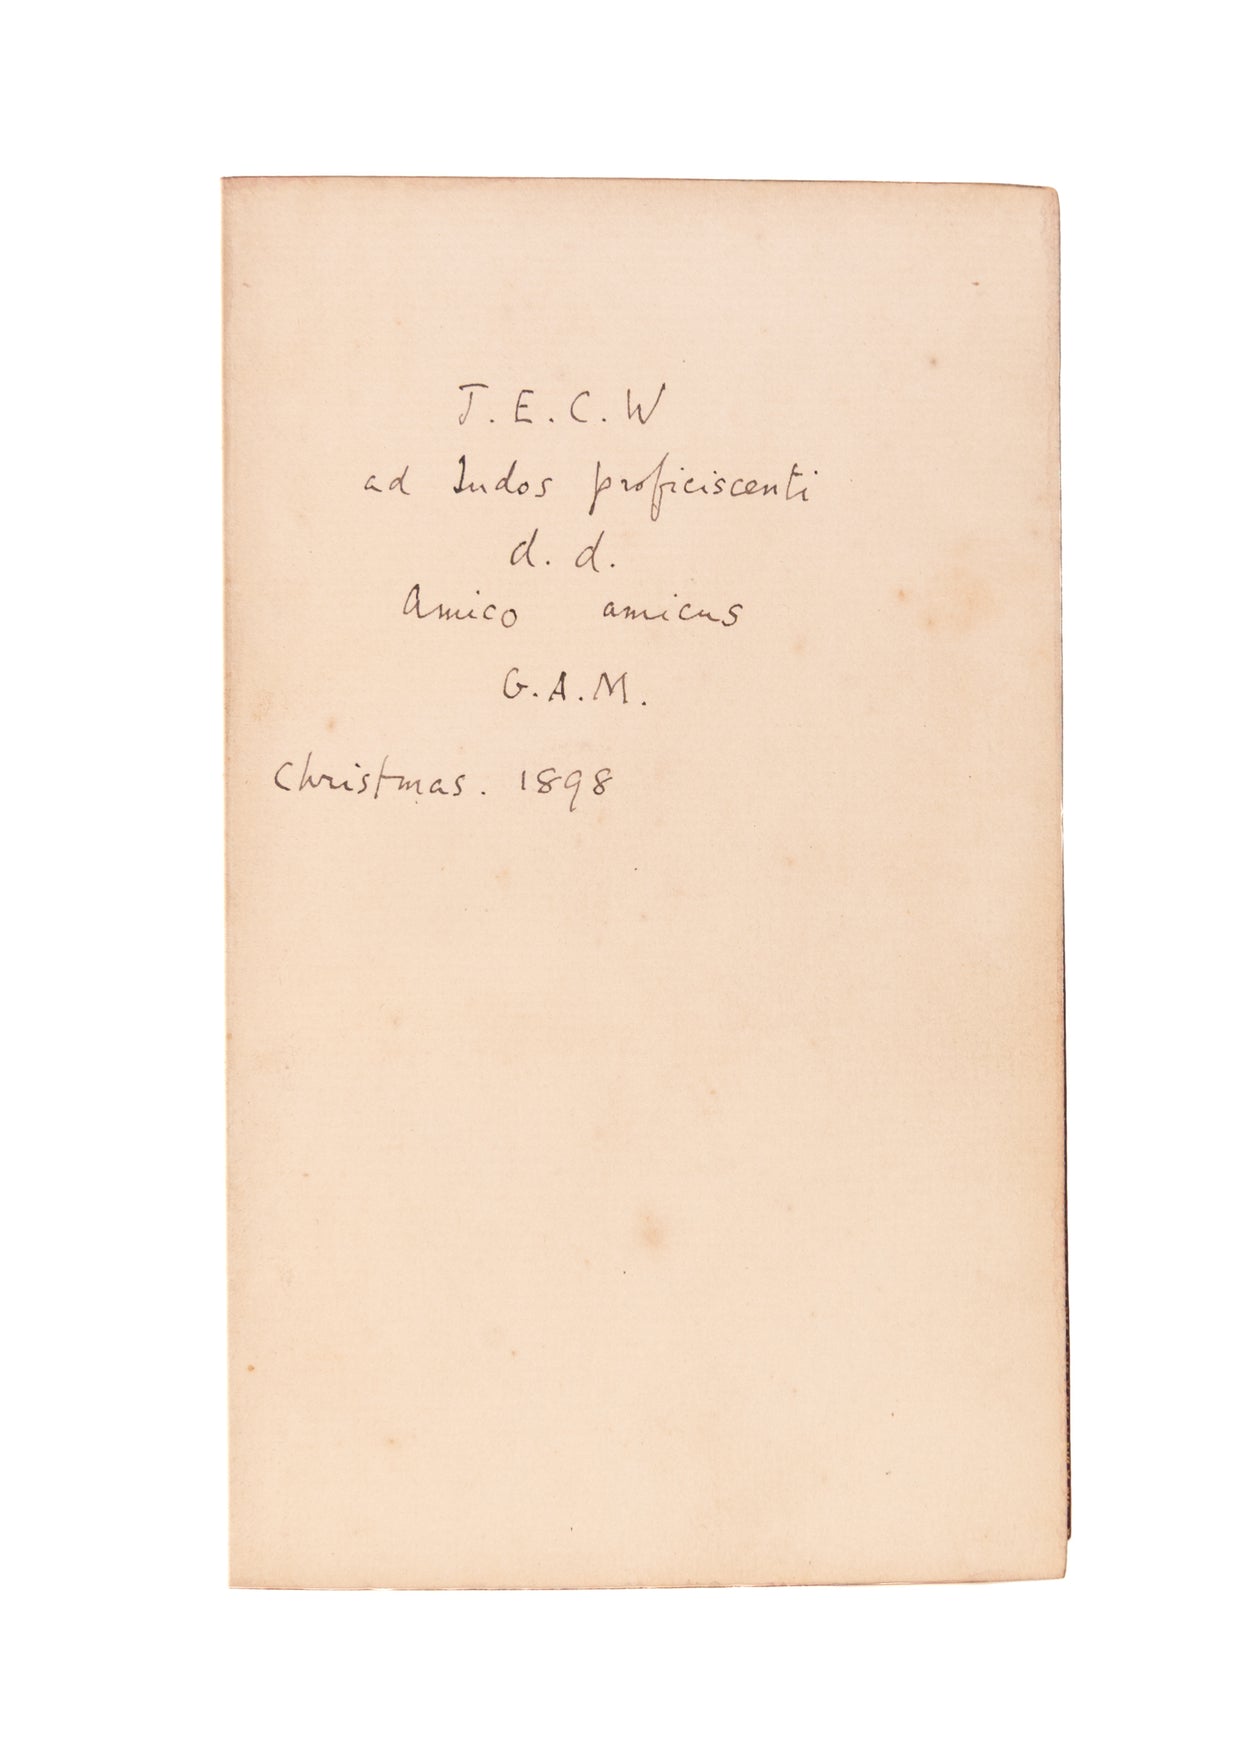 J. E. C. W
ad Indos proficiscenti
d. d.
Amico amicus
G. A. M.
Christmas. 1898